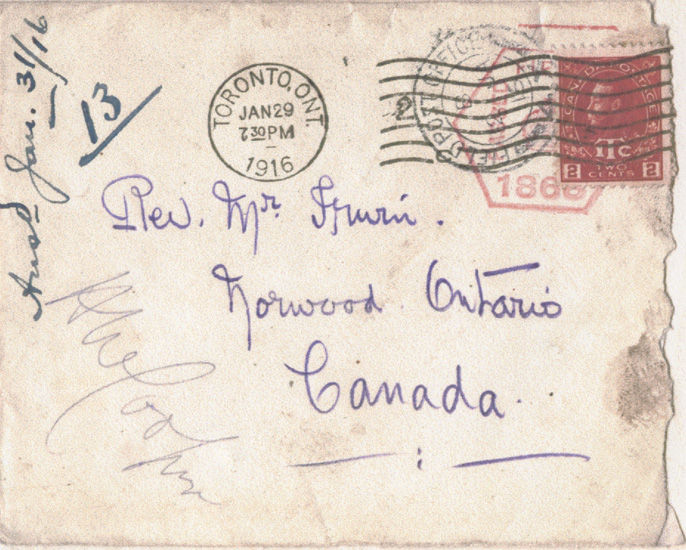 Ansd Jan. 31/16
13
TORONTO, ONT.
JAN 29
7 30 PM
1916
FIELD POST OFFICE
CANADA POSTAGE
1TC
2 TWO CENTS 2
1866
Rev. Mr. Irwin.
Norwood Ontario
Canada.